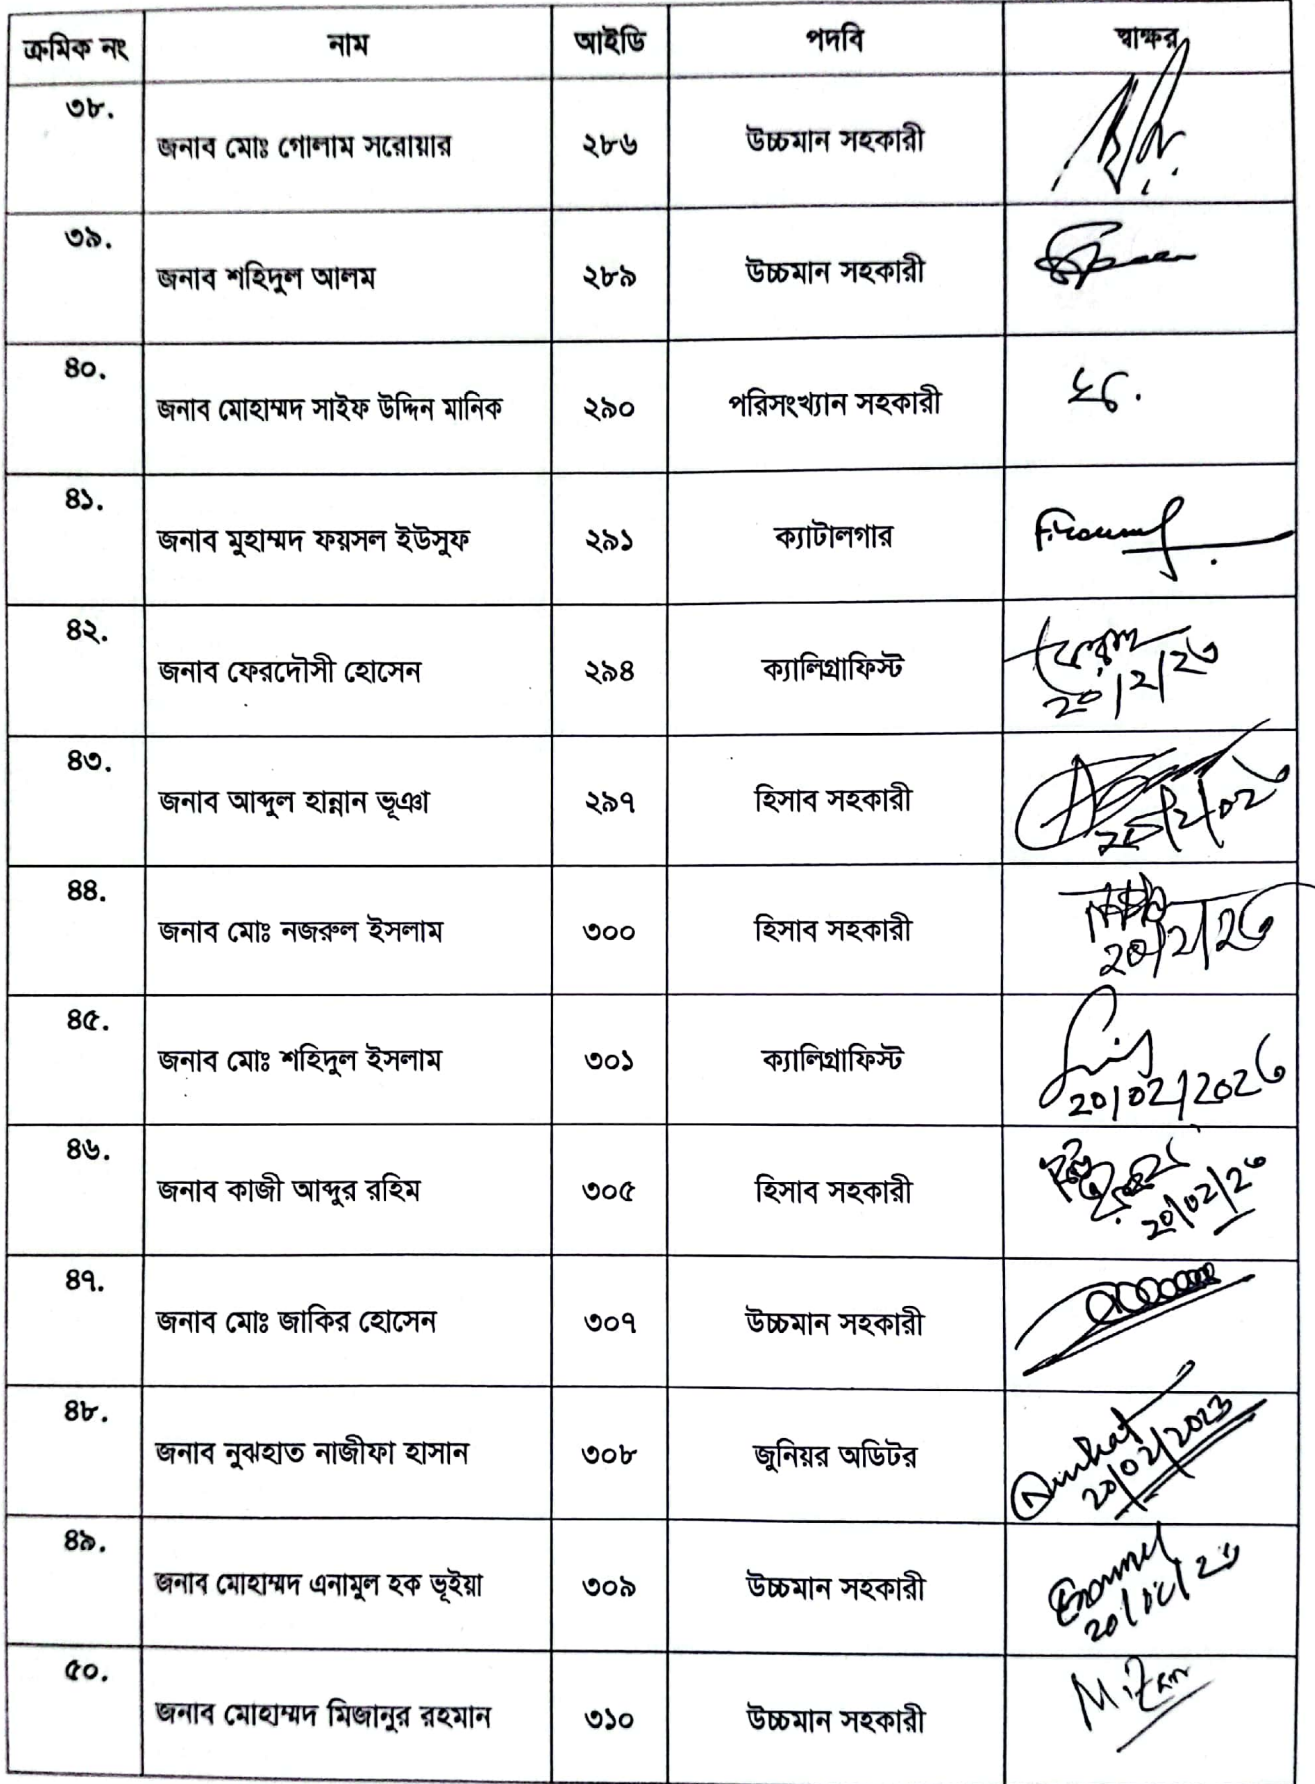 ক্রমিক নং নাম আইডি পদবি স্বাক্ষর
৩৮. জনাব মোঃ গোলাম সরোয়ার ২৮৬ উচ্চমান সহকারী
৩৯. জনাব শহিদুল আলম ২৮৯ উচ্চমান সহকারী
৪০. জনাব মোহাম্মদ সাইফ উদ্দিন মানিক ২৯০ পরিসংখ্যান সহকারী
৪১. জনাব মুহাম্মদ ফয়সল ইউসুফ ২৯১ ক্যাটালগার
৪২. জনাব ফেরদৌসী হোসেন ২৯৪ ক্যালিগ্রাফিস্ট
২০/২/২৩
৪৩. জনাব আব্দুল হান্নান ভূঞা ২৯৭ হিসাব সহকারী
৪৪. জনাব মোঃ নজরুল ইসলাম ৩০০ হিসাব সহকারী
২০/২/২৩
৪৫. জনাব মোঃ শহিদুল ইসলাম ৩০১ ক্যালিগ্রাফিস্ট
২০/০২/২০২৩
৪৬. জনাব কাজী আব্দুর রহিম ৩০৫ হিসাব সহকারী
২০/০২/২৩
৪৭. জনাব মোঃ জাকির হোসেন ৩০৭ উচ্চমান সহকারী
৪৮. জনাব নুঝহাত নাজীফা হাসান ৩০৮ জুনিয়র অডিটর
20/02/2023
৪৯. জনাব মোহাম্মদ এনামুল হক ভূইয়া ৩০৯ উচ্চমান সহকারী
৫০. জনাব মোহাম্মদ মিজানুর রহমান ৩১০ উচ্চমান সহকারী
Mizan